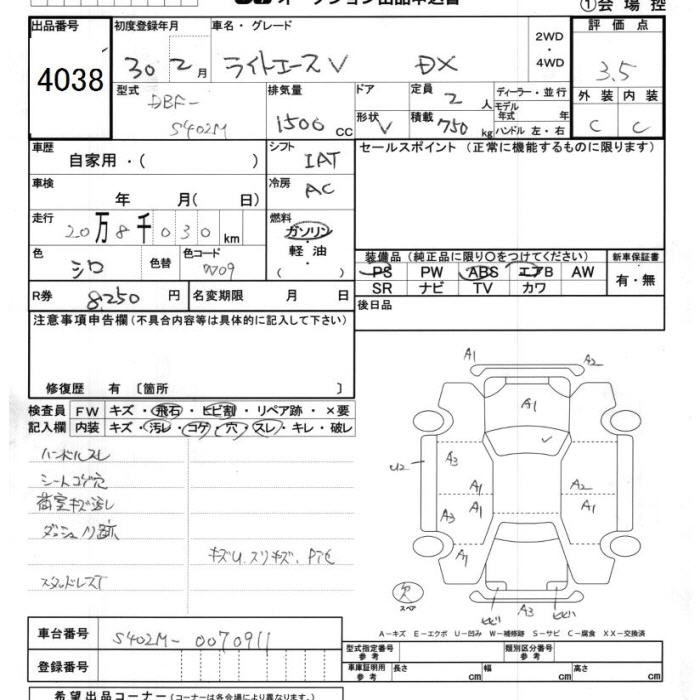 オークション出品申込書
①会場控
出品番号 4038
初度登録年月 30 2月
車名・グレード ライトエースV DX
2WD・4WD
評価点 3.5
型式 DBF-S402M
排気量 1500cc
ドア
形状 V
定員 2人
積載 750kg
ディーラー・並行
モデル年式 年
ハンドル 左・右
外装 C
内装 C
車歴 自家用・( )
シフト IAT
セールスポイント (正常に機能するものに限ります)
車検 年 月( 日)
冷房 AC
走行 20万8千030km
燃料 ガソリン・軽油 ( )
色 シロ 色替
色コード W09
装備品 (純正品に限り○をつけてください)
新車保証書 有・無
PS PW ABS エアB AW
SR ナビ TV カワ
R券 8,250円
名変期限 月 日
後日品
注意事項申告欄 (不具合内容等は具体的に記入して下さい)
修復歴 有 〔箇所 〕
検査員記入欄
FW キズ・飛石・ヒビ割・リペア跡・×要
内装 キズ・汚レ・コゲ・穴・スレ・キレ・破レ
ハンドルスレ
シートコゲ穴
荷室キズ凹し
ダッシュノリ跡
キズU、スリキズ、P化
スタッドレスT
A1 A2
A1
U2 A3 A1 A2
A3 A1 A1
A1 A1
スペア
ヒビ1 A3 ヒビ1
A-キズ E-エクボ U-凹み W-補修跡 S-サビ C-腐食 XX-交換済
車台番号 S402M-0070911
登録番号
型式指定番号 参考
類別区分番号 参考
車庫証明用 参考 長さ cm 幅 cm 高さ cm
希望出品コーナー (コーナーは各会場により異なります。)